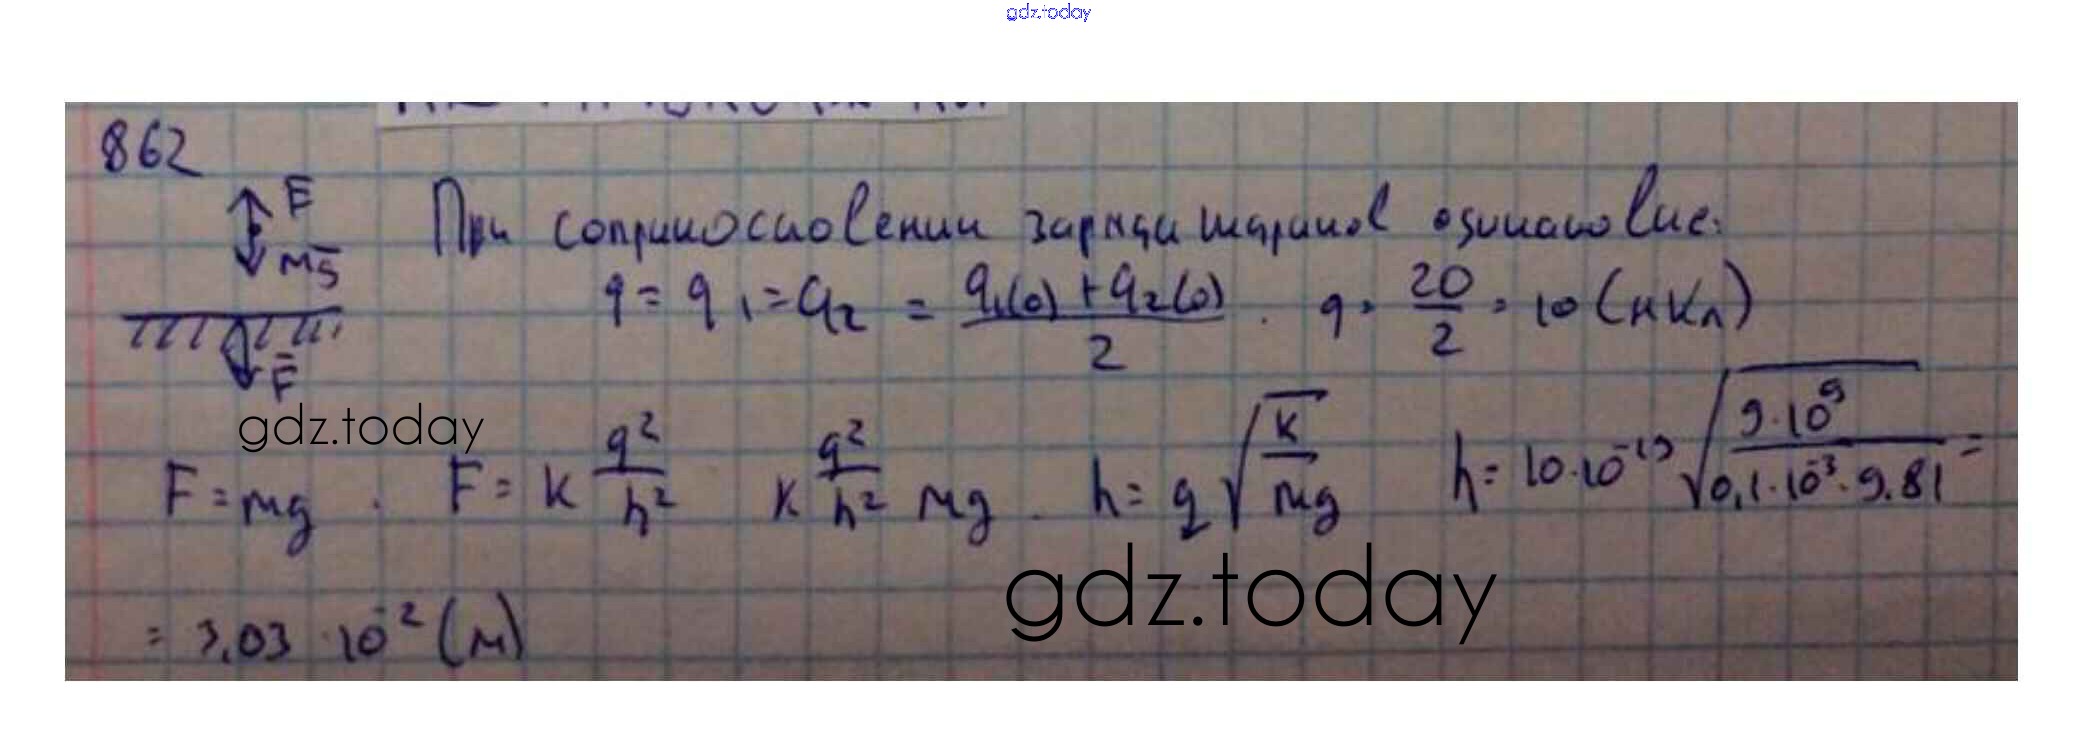 gdz.today
862
F
При соприкосновении заряди шариков одинаковые:
mg
q = q₁ = q₂ = q₁(0) + q₂(0) / 2 . q = 20 / 2 = 10 (нКл)
F
gdz.today
F = mg . F = k q² / h² k q² / h² mg . h = q √ k / mg h = 10 · 10⁻¹⁹ √ 9 · 10⁹ / 0,1 · 10⁻³ · 9.81 =
gdz.today
= 3,03 · 10⁻² (м)